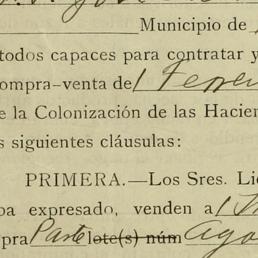 Municipio de
todos capaces para contratar y
ompra-venta de 1
e la Colonización de las Hacien
s siguientes cláusulas:
PRIMERA.—Los Sres. Lic
ba expresado, venden a
pra Parte lote(s) núm